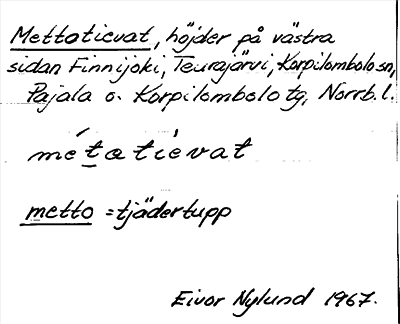 Mettatievat, höjder på västra
sidan Finnijoki, Teurajärvi, Korpilombolo sn,
Pajala o. Korpilombolo tg, Norrb. l.
métatìevat
metto = tjädertupp
Eivor Nylund 1967.